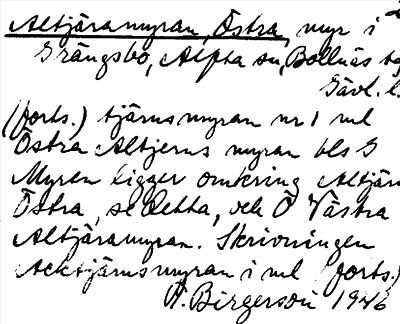 Altjäramyran, Östra, myr i
Grängsbo, Alfta sn, Bollnäs
Gävl. l.
(forts.) tjärnsmyran nr 1 ml
Östra Altjerns myran bls G
Myren ligger omkring Altjärn
Östra, se detta, och Ö Västra
Altjäramyran. Skrivningen
Acktjärnsmyran i ml (forts.)
Birgerson 1946